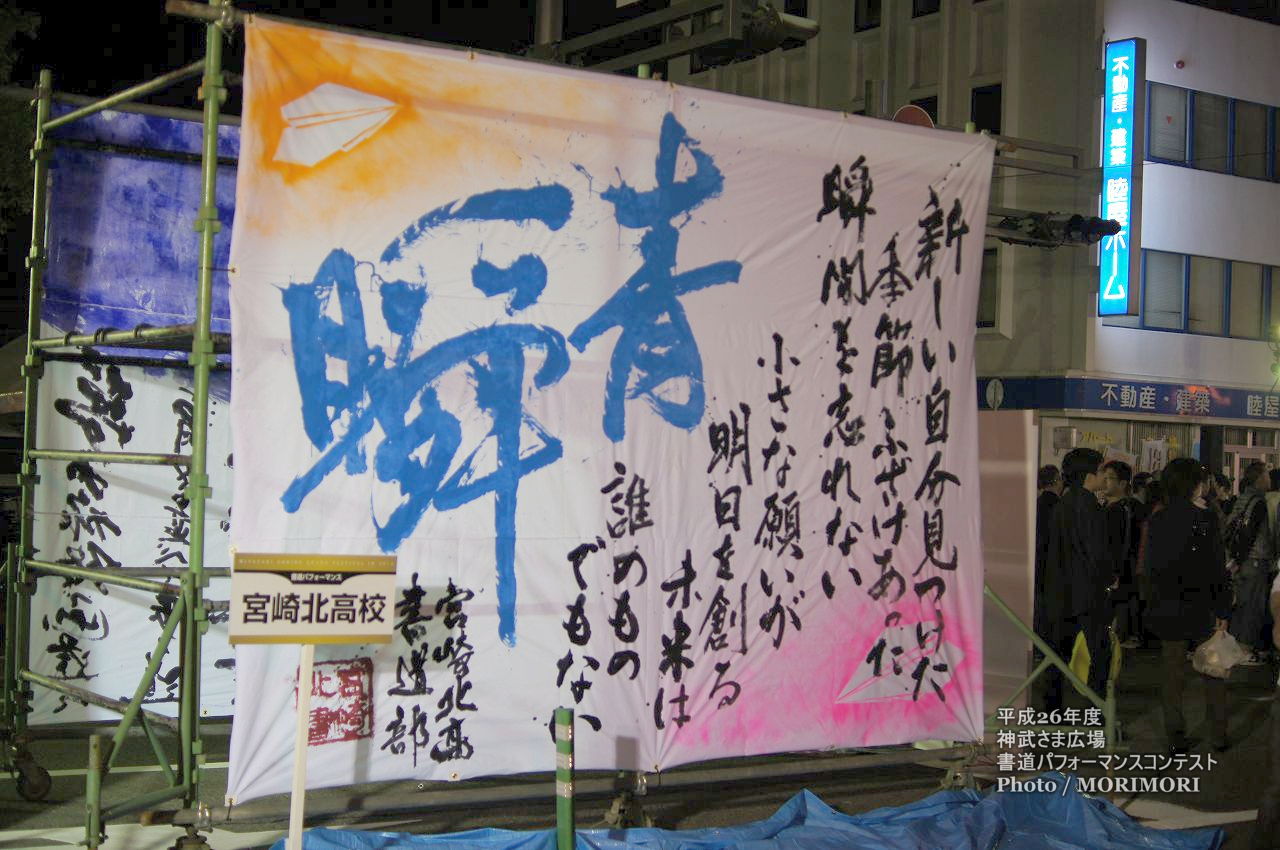 青
瞬
新しい自分見つけた
季節ふざけあった
瞬間を忘れない
小さな願いが
明日を創る
未来は
誰のもの
でもない
宮崎北高
書道部
宮崎
北書
書道パフォーマンス
宮崎北高校
不動産・建築 陸屋ホーム
不動産・建築 陸屋
平成26年度
神武さま広場
書道パフォーマンスコンテスト
Photo / MORIMORI